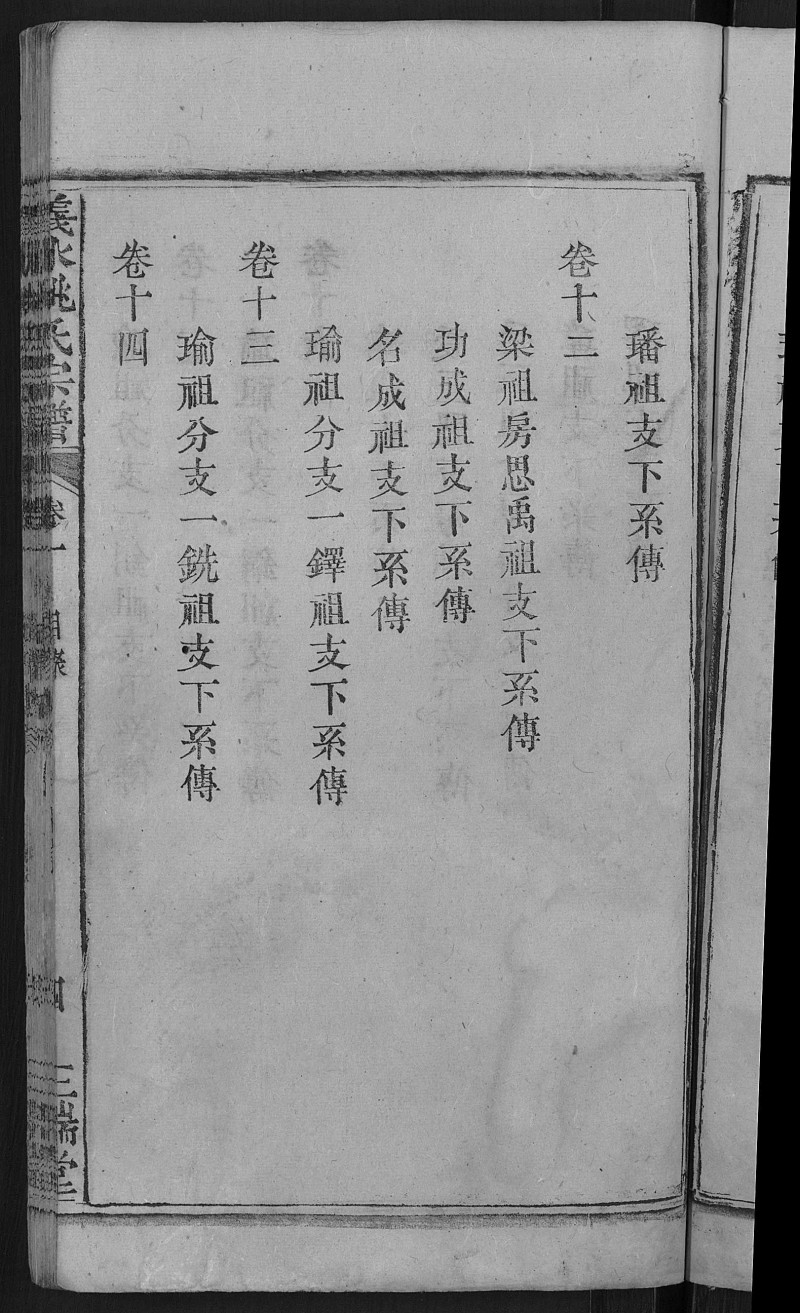 璠祖支下系傳
卷十二
梁祖房思禹祖支下系傳
功成祖支下系傳
名成祖支下系傳
卷十三
瑜祖分支一鐸祖支下系傳
瑜祖分支一銑祖支下系傳
卷十四
義水姚氏宗譜 卷一 目錄 四 三瑞堂